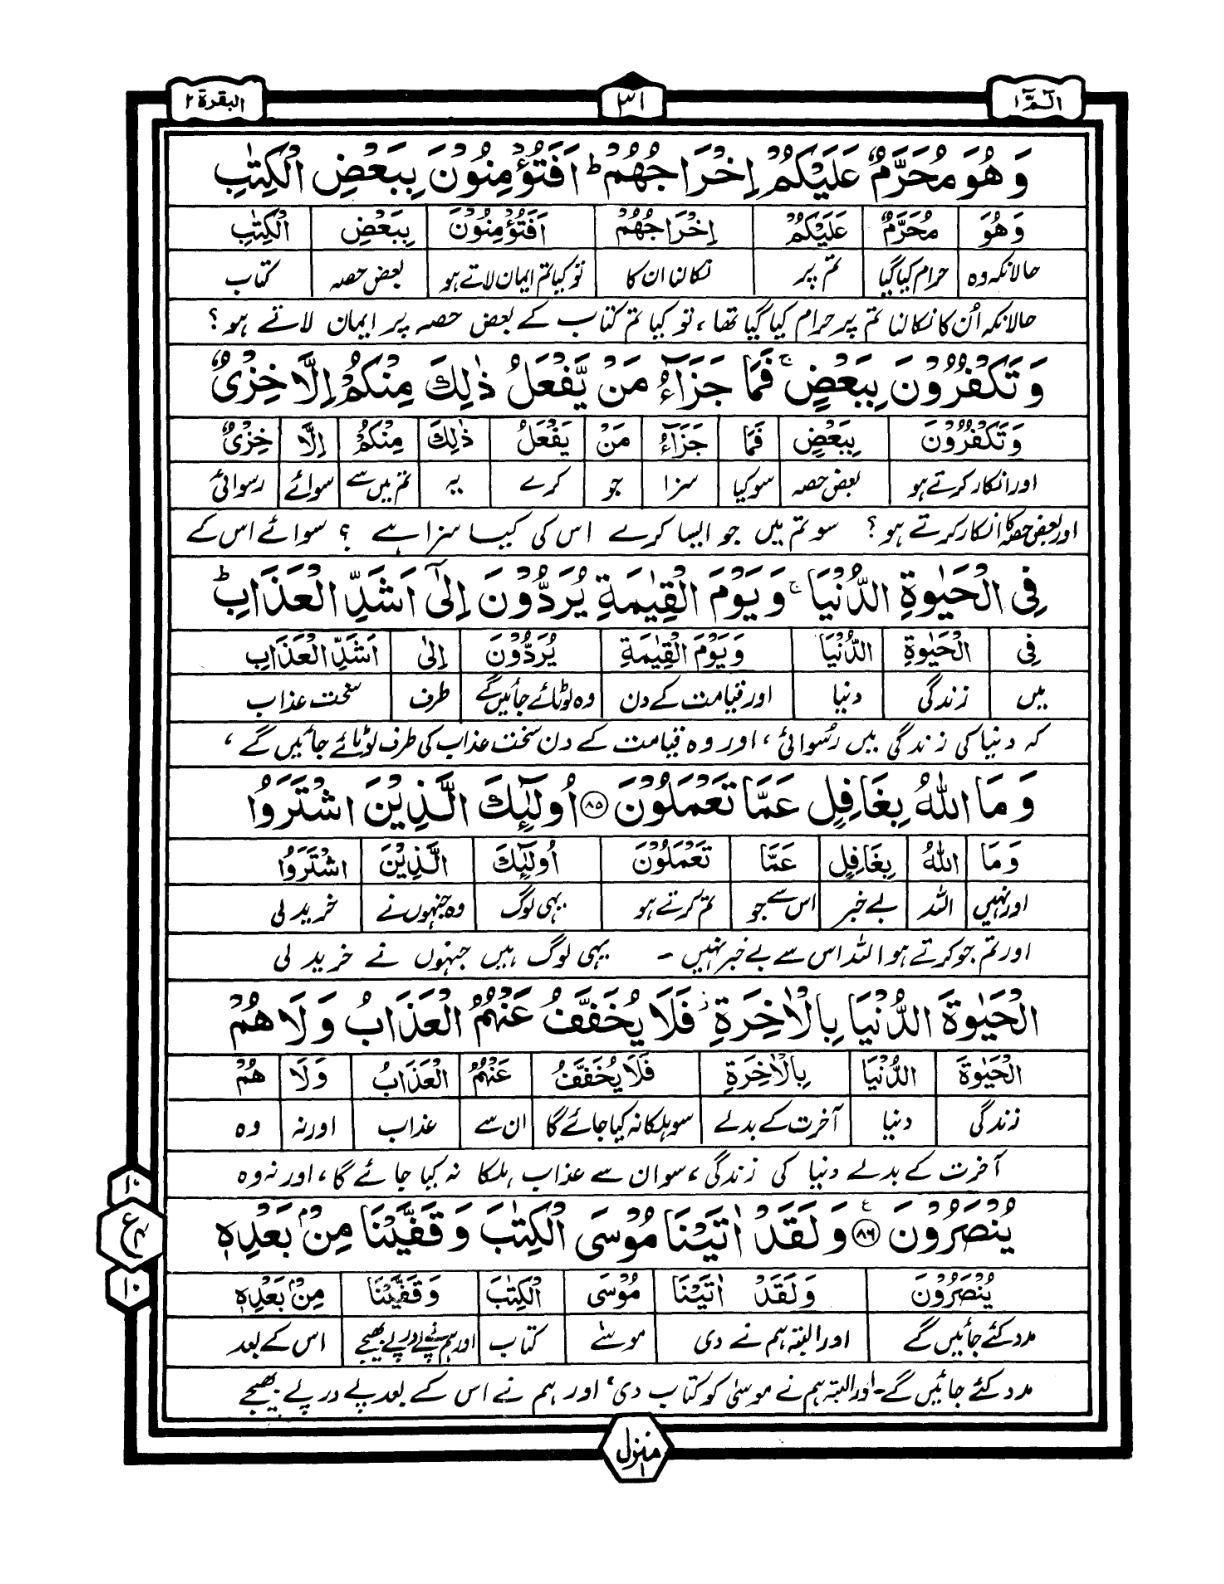 الٓمّٓ ١
٣١
البقرة ٢
وَهُوَ مُحَرَّمٌ عَلَيْكُمْ اِخْرَاجُهُمْ ؕ اَفَتُؤْمِنُوْنَ بِبَعْضِ الْكِتٰبِ
وَهُوَ مُحَرَّمٌ عَلَيْكُمْ اِخْرَاجُهُمْ اَفَتُؤْمِنُوْنَ بِبَعْضِ الْكِتٰبِ
حالانکہ وہ حرام کیا گیا تم پر نکالنا ان کا تو کیا تم ایمان لاتے ہو بعض حصہ کتاب
حالانکہ اُن کا نکالنا تم پر حرام کیا گیا تھا، تو کیا تم کتاب کے بعض حصہ پر ایمان لاتے ہو؟
وَتَكْفُرُوْنَ بِبَعْضٍ ۚ فَمَا جَزَآءُ مَنْ يَّفْعَلُ ذٰلِكَ مِنْكُمْ اِلَّا خِزْىٌ
وَتَكْفُرُوْنَ بِبَعْضٍ فَمَا جَزَآءُ مَنْ يَفْعَلُ ذٰلِكَ مِنْكُمْ اِلَّا خِزْىٌ
اور انکار کرتے ہو بعض حصہ سو کیا سزا جو کرے یہ تم میں سے سوائے رسوائی
اور بعض حصہ کا انکار کرتے ہو؟ سو تم میں جو ایسا کرے اس کی کیا سزا ہے ؟ سوائے اس کے
فِى الْحَيٰوةِ الدُّنْيَا ۚ وَيَوْمَ الْقِيٰمَةِ يُرَدُّوْنَ اِلٰٓى اَشَدِّ الْعَذَابِ ؕ
فِى الْحَيٰوةِ الدُّنْيَا وَيَوْمَ الْقِيٰمَةِ يُرَدُّوْنَ اِلٰى اَشَدِّ الْعَذَابِ
میں زندگی دنیا اور قیامت کے دن وہ لوٹائے جائیں گے طرف سخت عذاب
کہ دنیا کی زندگی میں رُسوائی، اور وہ قیامت کے دن سخت عذاب کی طرف لوٹائے جائیں گے،
وَمَا اللّٰهُ بِغَافِلٍ عَمَّا تَعْمَلُوْنَ ۝٨٥ اُولٰٓئِكَ الَّذِيْنَ اشْتَرَوُا
وَمَا اللّٰهُ بِغَافِلٍ عَمَّا تَعْمَلُوْنَ اُولٰٓئِكَ الَّذِيْنَ اشْتَرَوُا
اور نہیں اللہ بے خبر اس سے جو تم کرتے ہو یہی لوگ وہ جنہوں نے خرید لی
اور تم جو کرتے ہو اللہ اس سے بے خبر نہیں - یہی لوگ ہیں جنہوں نے خرید لی
الْحَيٰوةَ الدُّنْيَا بِالْاٰخِرَةِ ؗ فَلَا يُخَفَّفُ عَنْهُمُ الْعَذَابُ وَلَا هُمْ
الْحَيٰوةَ الدُّنْيَا بِالْاٰخِرَةِ فَلَا يُخَفَّفُ عَنْهُمُ الْعَذَابُ وَلَا هُمْ
زندگی دنیا آخرت کے بدلے سو ہلکا نہ کیا جائے گا ان سے عذاب اور نہ وہ
آخرت کے بدلے دنیا کی زندگی، سو ان سے عذاب ہلکا نہ کیا جائے گا، اور نہ وہ
يُنْصَرُوْنَ ۝٨٦ ع وَلَقَدْ اٰتَيْنَا مُوْسَى الْكِتٰبَ وَقَفَّيْنَا مِنْۢ بَعْدِهٖ
١٠
ع
١٠
يُنْصَرُوْنَ وَلَقَدْ اٰتَيْنَا مُوْسَى الْكِتٰبَ وَقَفَّيْنَا مِنْۢ بَعْدِهٖ
مدد کئے جائیں گے اور البتہ ہم نے دی موسٰے کتاب اور ہم نے پے درپے بھیجے اس کے بعد
مدد کئے جائیں گے۔ اور البتہ ہم نے موسیٰ کو کتاب دی، اور ہم نے اس کے بعد پے در پے بھیجے
منزل ١